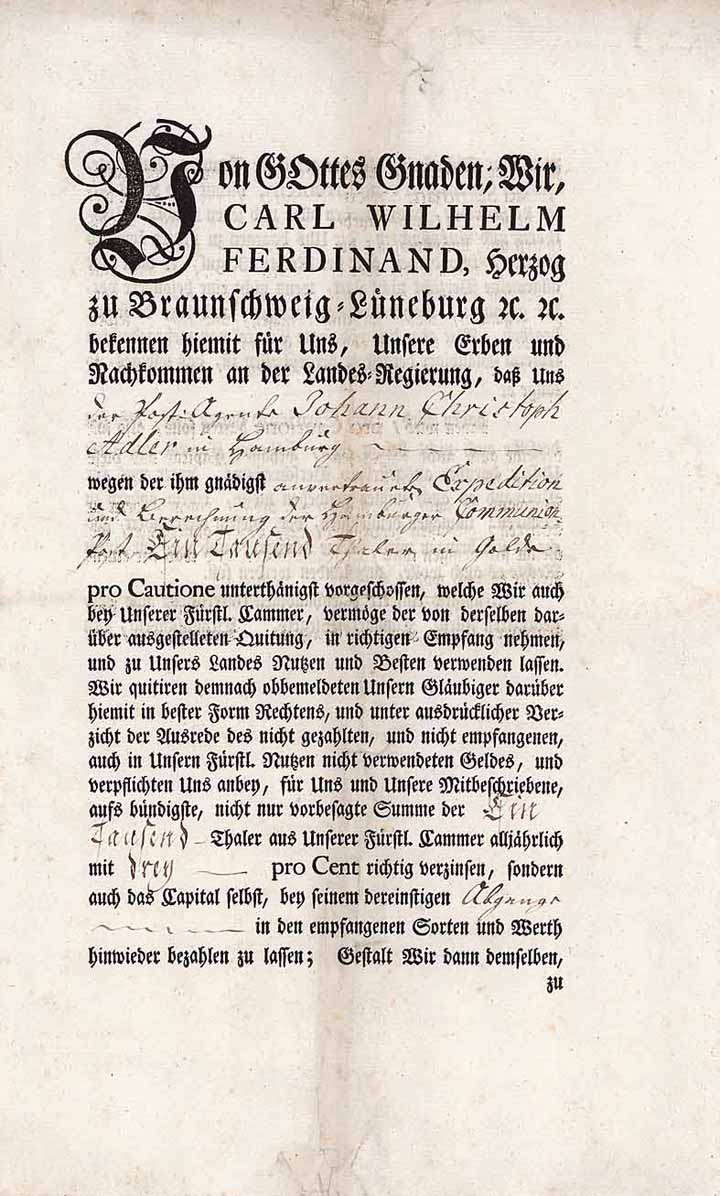 Von GOttes Gnaden, Wir,
CARL WILHELM
FERDINAND, Herzog
zu Braunschweig-Lüneburg ꝛc. ꝛc.
bekennen hiemit für Uns, Unsere Erben und
Nachkommen an der Landes-Regierung, daß Uns
der Post-Agente Johann Christoph
Adler in Hamburg
wegen der ihm gnädigst anvertraueten Expedition
und Berechnung der Hamburger Communion-
Post, Ein Tausend Thaler in Golde
pro Cautione unterthänigst vorgeschossen, welche Wir auch
bey Unserer Fürstl. Cammer, vermöge der von derselben dar-
über ausgestelleten Quitung, in richtigen Empfang nehmen,
und zu Unsers Landes Nutzen und Besten verwenden lassen.
Wir quitiren demnach obbemeldeten Unsern Gläubiger darüber
hiemit in bester Form Rechtens, und unter ausdrücklicher Ver-
zicht der Ausrede des nicht gezahlten, und nicht empfangenen,
auch in Unsern Fürstl. Nutzen nicht verwendeten Geldes, und
verpflichten Uns anbey, für Uns und Unsere Mitbeschriebene,
aufs bündigste, nicht nur vorbesagte Summe der Ein
Tausend Thaler aus Unserer Fürstl. Cammer alljährlich
mit drey pro Cent richtig verzinsen, sondern
auch das Capital selbst, bey seinem dereinstigen Abgange
in den empfangenen Sorten und Werth
hinwieder bezahlen zu lassen; Gestalt Wir dann demselben,
zu